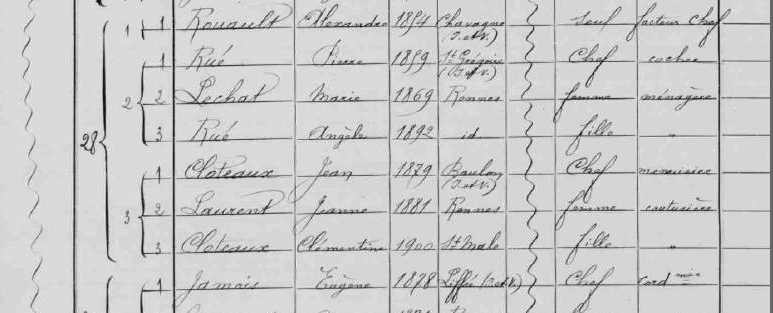 1 1 Rouault Alexandre 1854 Chavagne (I. et V.) seul facteur chef
1 Rué Pierre 1859 St Grégoire (I. et V.) Chef cocher
28 2 2 Lechat Marie 1869 Rennes femme ménagère
3 Rué Angèle 1892 id fille "
1 Cloteaux Jean 1879 Baulon (I. et V.) Chef menuisier
3 2 Laurent Jeanne 1881 Rennes femme couturière
3 Cloteaux Clémentine 1900 St Malo fille "
1 Jamois Eugène 1878 Liffré (I. et V.) Chef cord